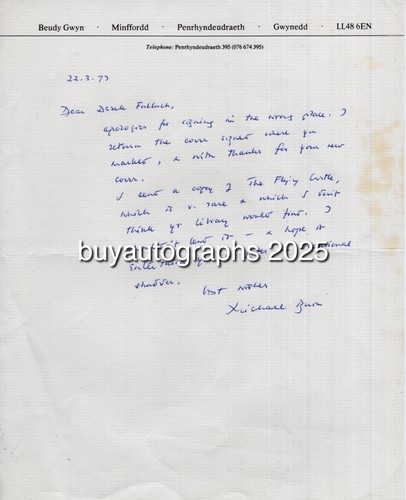 Beudy Gwyn · Minffordd · Penrhyndeudraeth · Gwynedd · LL48 6EN
Telephone: Penrhyndeudraeth 395 (076 674 395)
22.3.77
Dear Derek
apologies for signing in the wrong place. I
return the cover signed where you
marked, & with thanks for your new
cover.
I send a copy of The Flying Castle,
which is v. rare & which I don't
think yr library would find. I
lend it — & hope it
buyautographs 2025
best wishes
Michael Burn